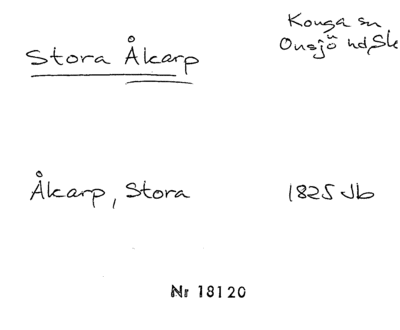 Stora Åkarp
Konga sn
Onsjö hd, Sk
Åkarp, Stora
1825 Jb
Nr 18120